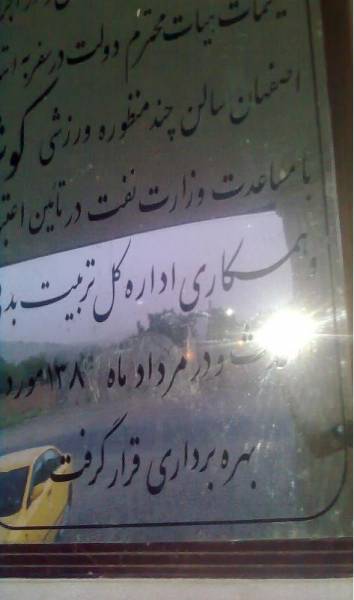 هیات محترم دولت در سفر به
اصفهان سالن چند منظوره ورزشی
با مساعدت وزارت نفت در تأمین
و همکاری اداره کل تربیت
و در مرداد ماه ۱۳۸ مورد
بهره برداری قرار گرفت